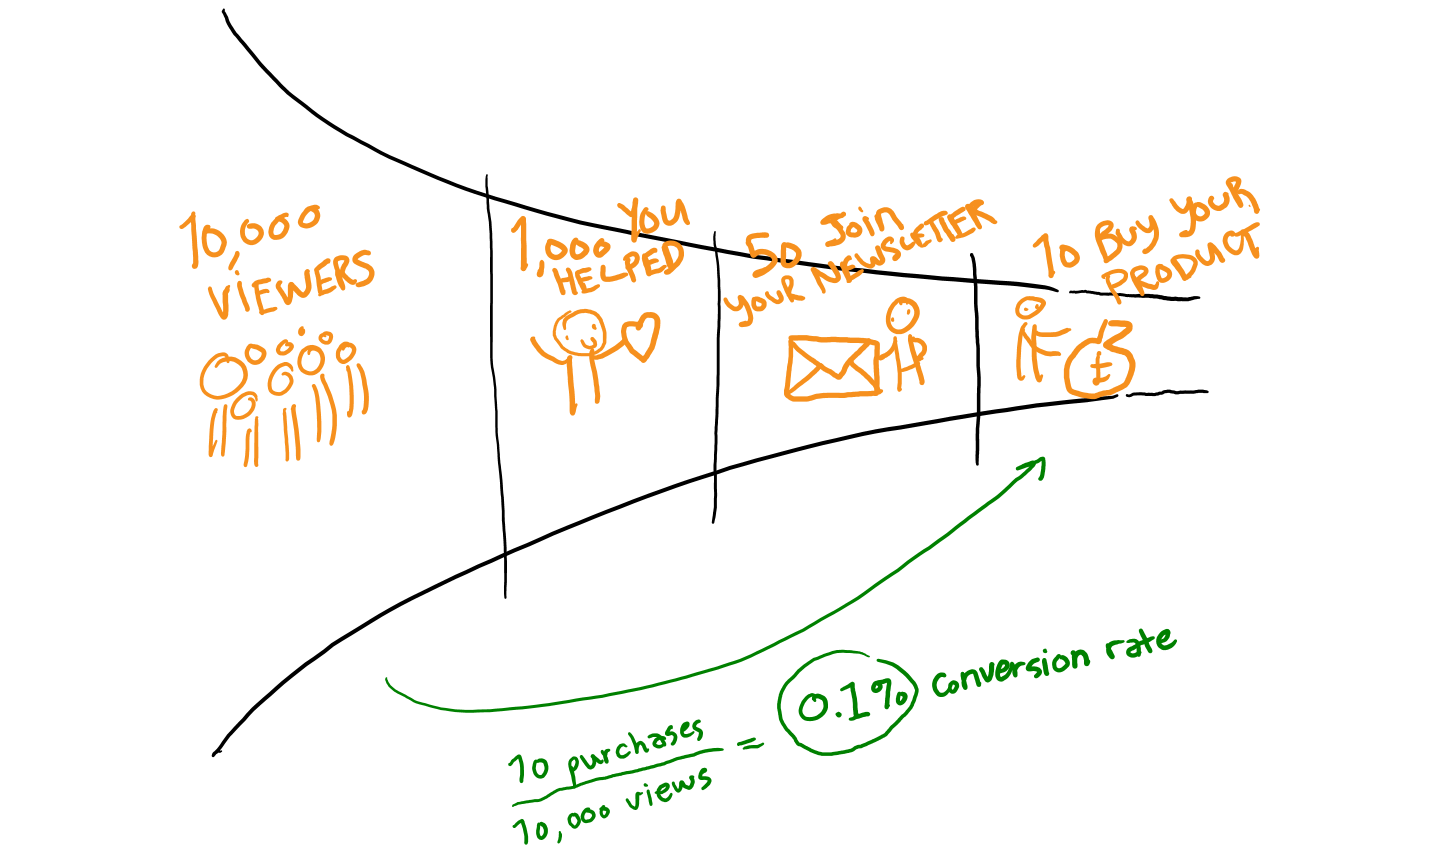 10,000
VIEWERS
1,000 YOU
HELPED
50 JOIN
YOUR NEWSLETTER
10 BUY YOUR
PRODUCT
£
10 purchases
10,000 views
= 0.1% conversion rate